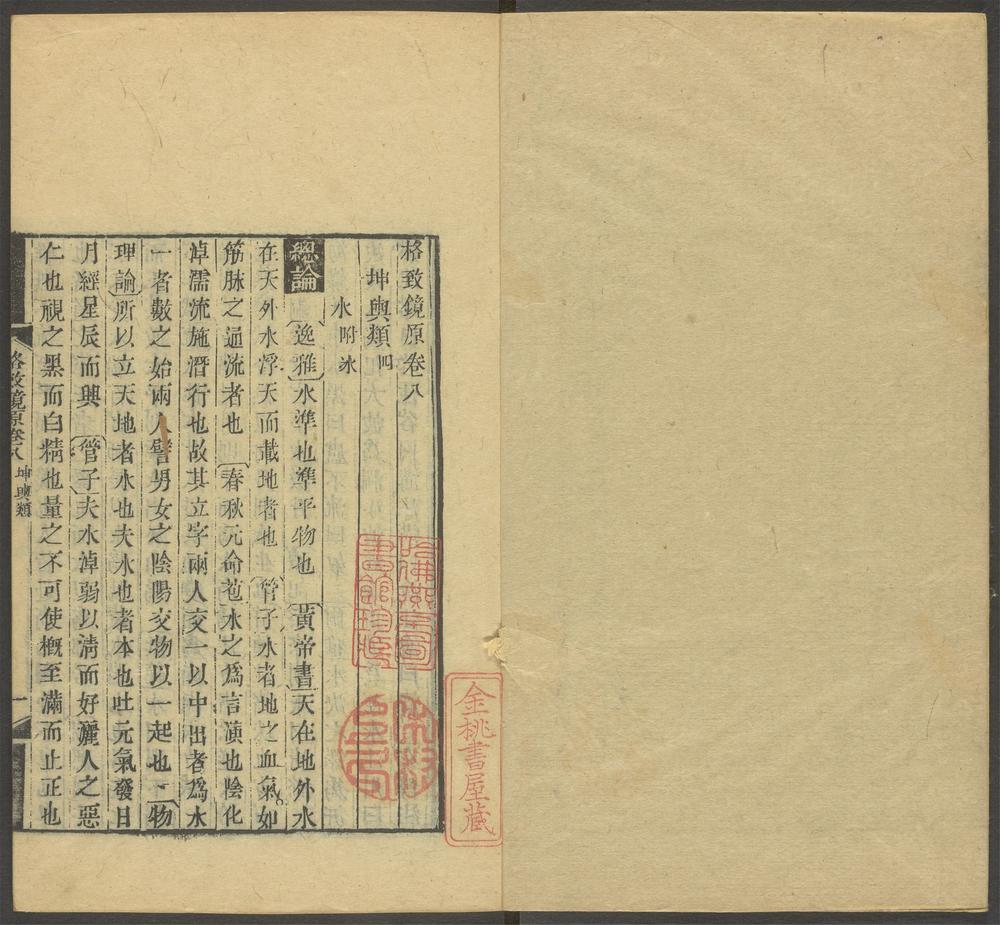 格致鏡原卷八
坤輿類四
水附冰
總論 逸雅水準也準平物也 黃帝書天在地外水
在天外水浮天而載地者也 管子水者地之血氣如
筋脉之通流者也 春秋元命苞水之爲言演也陰化
淖濡流施潛行也故其立字兩人交一以中出者爲水
一者數之始兩人譬男女之陰陽交物以一起也 物
理論所以立天地者水也夫水也者本也吐元氣發日
月經星辰而興 管子夫水淖弱以清而好灑人之惡
仁也視之黑而白精也量之不可使概至滿而止正也
格致鏡原卷八 坤輿類 一
哈佛燕京圖
書館珍藏
金桃書屋藏